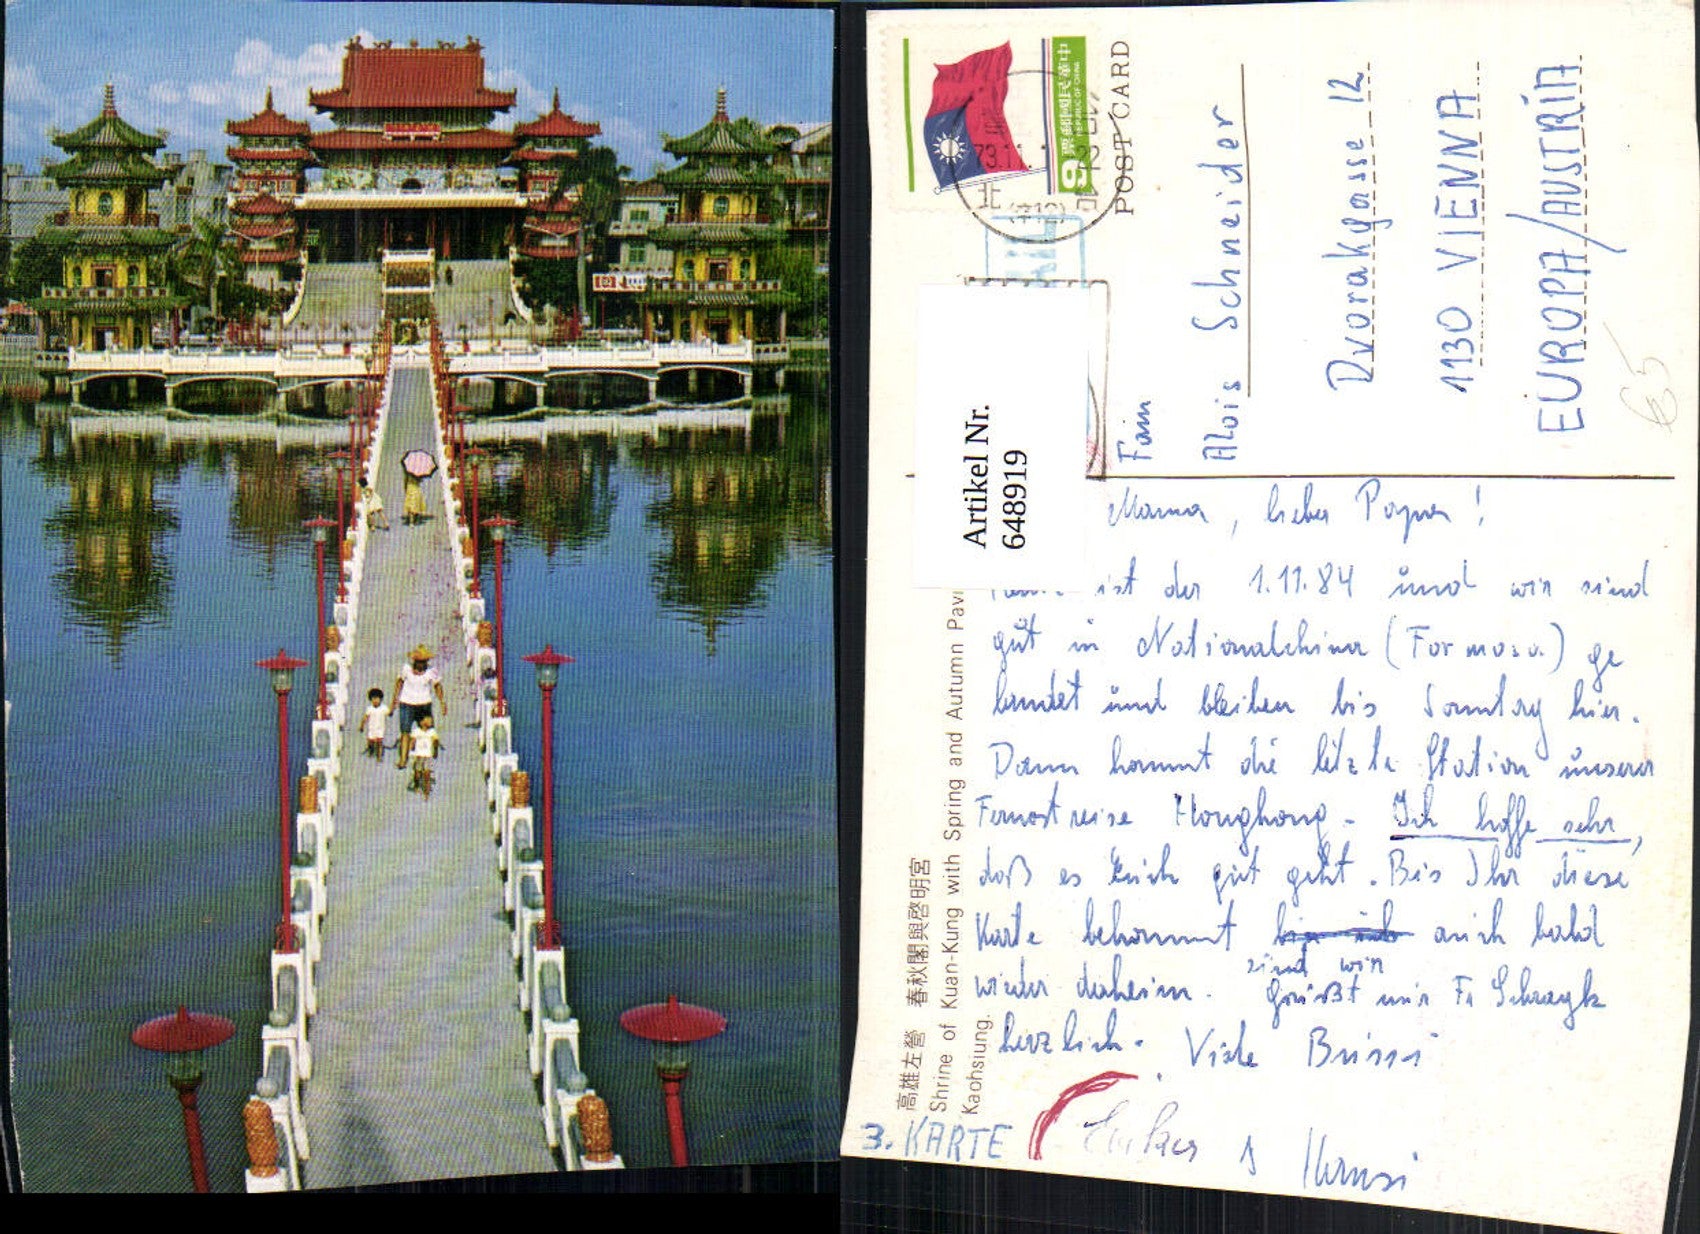 中華民國郵票
REPUBLIC OF CHINA
9
73.11.
北
POST CARD
Artikel Nr.
648919
Fam
Alois Schneider
Dvorakgasse 12
1130 VIENNA
EUROPA/AUSTRIA
€5
Mama, lieber Papa!
ist der 1.11.84 und wir sind
gut in Nationalchina (Formosa) ge
landet und bleiben bis Sonntag hier.
Dann kommt die letzte Station unserer
Fernostreise Hongkong. Ich hoffe sehr,
daß es Euch gut geht. Bis Ihr diese
Karte bekommt auch bald
sind wir
wieder daheim. Grüßt mir Fr
herzlich. Viele Bussi
Hansi
3. KARTE
高雄左營 春秋閣與啓明宮
Shrine of Kuan-Kung with Spring and Autumn Pavi
Kaohsiung.